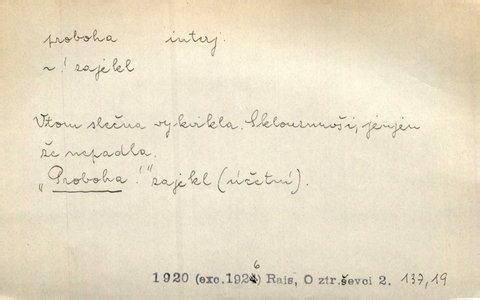 proboha interj.
~! zajekl
Vtom slečna vykvikla. Sklouznuvši, jenjen
že nepadla.
„Proboha!" zajekl (účetní).
6
1920 (exc. 1924) Rais, O ztr. ševci 2. 137,19